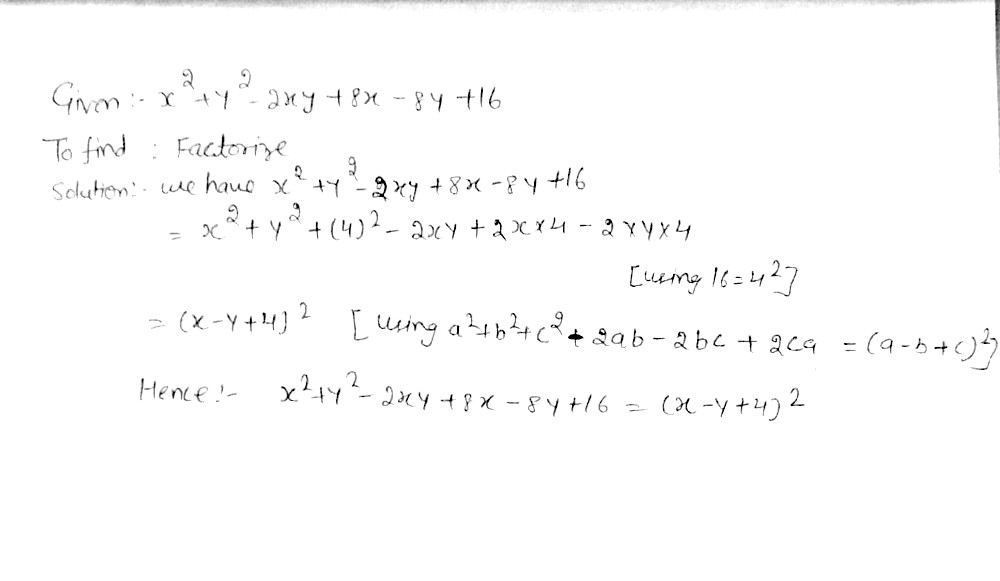 Given :- x²+y²-2xy+8x-8y+16
To find : Factorize
Solution:- we have x²+y²-2xy+8x-8y+16
= x²+y²+(4)²-2xy+2x×4-2×y×4
[using 16=4²]
= (x-y+4)² [using a²+b²+c²-2ab-2bc+2ca =(a-b+c)²]
Hence :- x²+y²-2xy+8x-8y+16 = (x-y+4)²